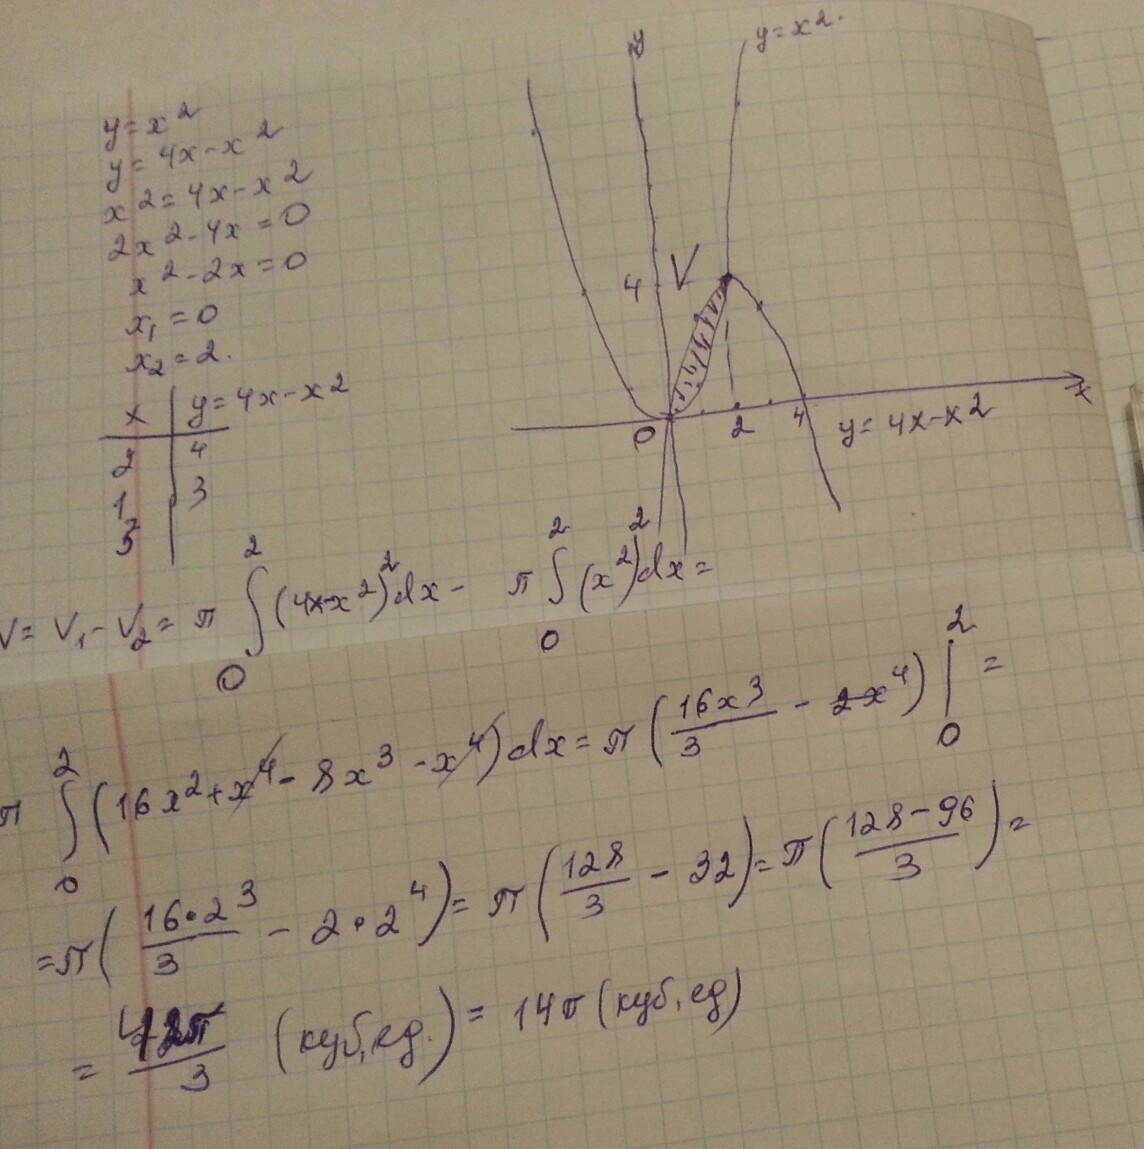 y = x²
y = 4x - x²
x² = 4x - x²
2x² - 4x = 0
x² - 2x = 0
x₁ = 0
x₂ = 2.
x | y = 4x - x²
2 | 4
1 | 3
3 |
y
y = x².
4
V
0
2
4
x
y = 4x - x²
V = V₁ - V₂ = π ∫₀² (4x - x²)² dx - π ∫₀² (x²)² dx =
π ∫₀² (16x² + x⁴ - 8x³ - x⁴) dx = π (16x³/3 - 2x⁴) |₀² =
= π (16·2³/3 - 2·2⁴) = π (128/3 - 32) = π (128 - 96/3) =
= 42π/3 (куб, ед.) = 14π (куб, ед)